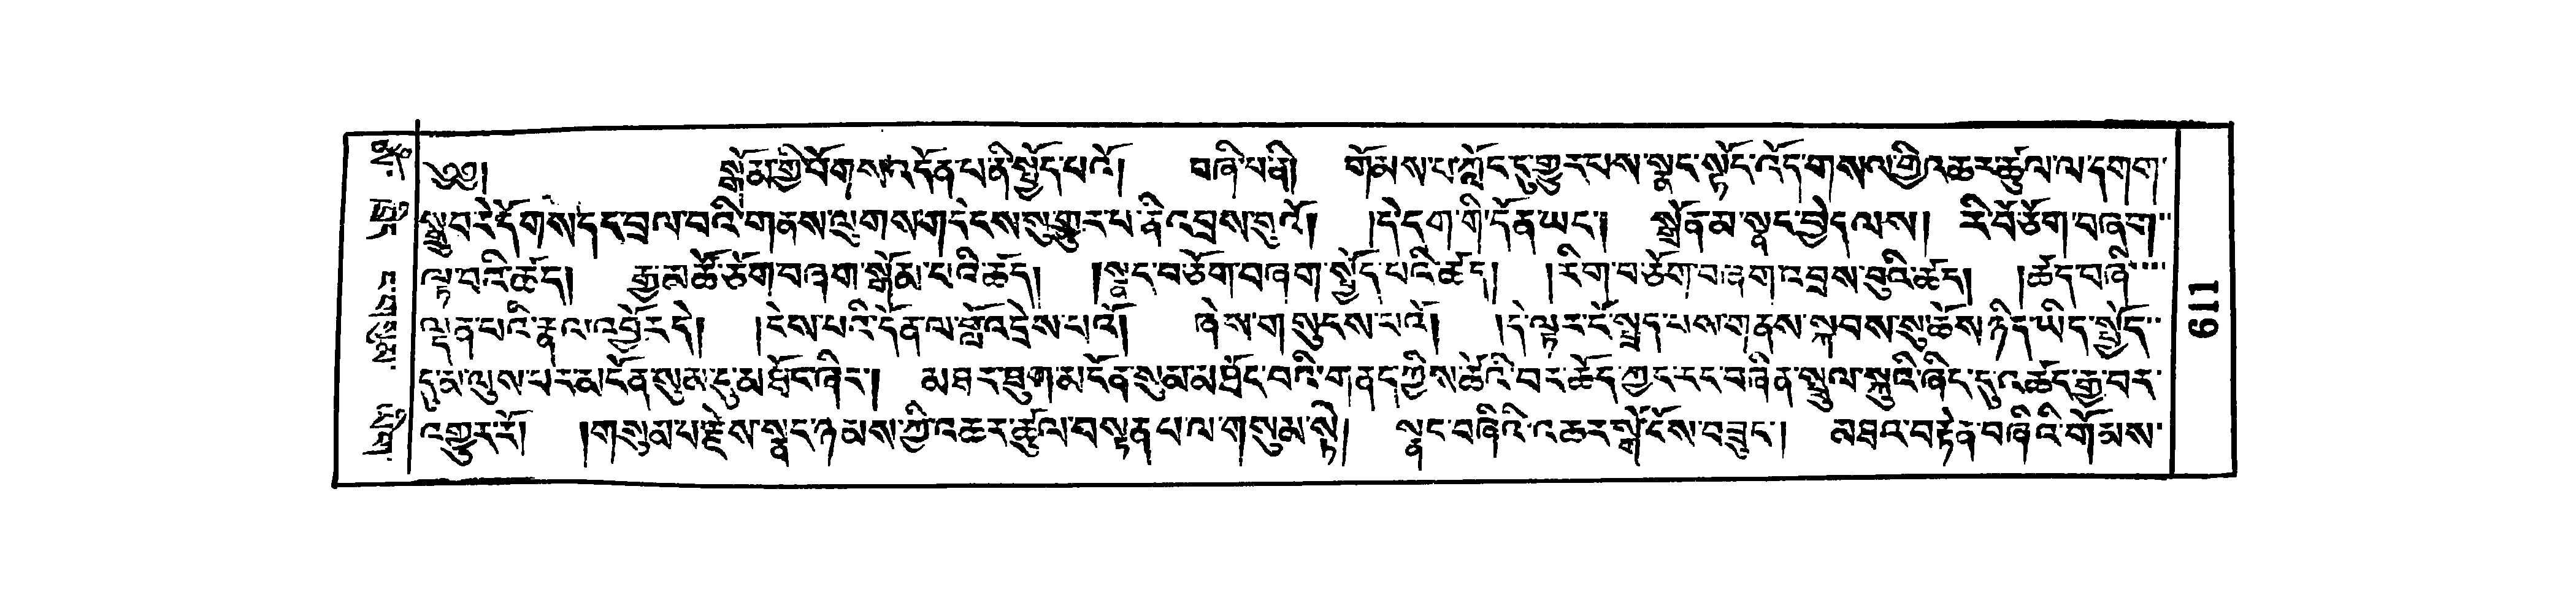 ༄༅། སྒོམ་གྱི་བོགས་འདོན་པ་ནི་སྤྱོད་པའོ། བཞི་པ་ནི། གོམས་པ་ཀློང་དུ་གྱུར་པས་སྣང་སྟོང་འོད་གསལ་གྱི་འཆར་ཚུལ་ལ་དགག་
སྒྲུབ་རེ་དོགས་དང་བྲལ་བའི་གནས་ལུགས་གདེངས་སུ་གྱུར་པ་ནི་འབྲས་བུའོ། །དེ་དག་གི་དོན་ཡང༌། སྒྲོན་མ་སྣང་བྱེད་ལས། རི་བོ་ཅོག་བཞག་
ལྟ་བའི་ཚད། རྒྱ་མཚོ་ཅོག་བཞག་སྒོམ་པའི་ཚད། །སྣང་བ་ཅོག་བཞག་སྤྱོད་པའི་ཚད། །རིག་པ་ཅོག་བཞག་འབྲས་བུའི་ཚད། །ཚད་བཞི་
ལྡན་པའི་རྣལ་འབྱོར་དེ། །ངེས་པའི་དོན་ལ་བློ་འདྲེས་པའོ། ཞེས་གསུངས་པའོ། །དེ་ལྟར་ངོ་སྤྲད་པས་གནས་སྐབས་སུ་ཆོས་ཉིད་ཡིད་སྤྱོད་
དུ་མ་ལུས་པར་མངོན་སུམ་དུ་མཐོང་ཞིང༌། མཐར་ཐུག་མངོན་སུམ་མཐོང་བའི་གནད་ཀྱིས་ཚེའི་བར་ཆོད་ཀྱང་རང་བཞིན་སྤྲུལ་སྐུའི་ཞིང་དུ་འཚང་རྒྱ་བར་
འགྱུར་རོ། །གསུམ་པ་རྗེས་སྣང་ཉམས་ཀྱི་འཆར་ཚུལ་བསྟན་པ་ལ་གསུམ་སྟེ། སྣང་བཞིའི་འཆར་སྒོ་ངོས་བཟུང༌། མཐའ་བརྟེན་བཞིའི་གོམས་
116